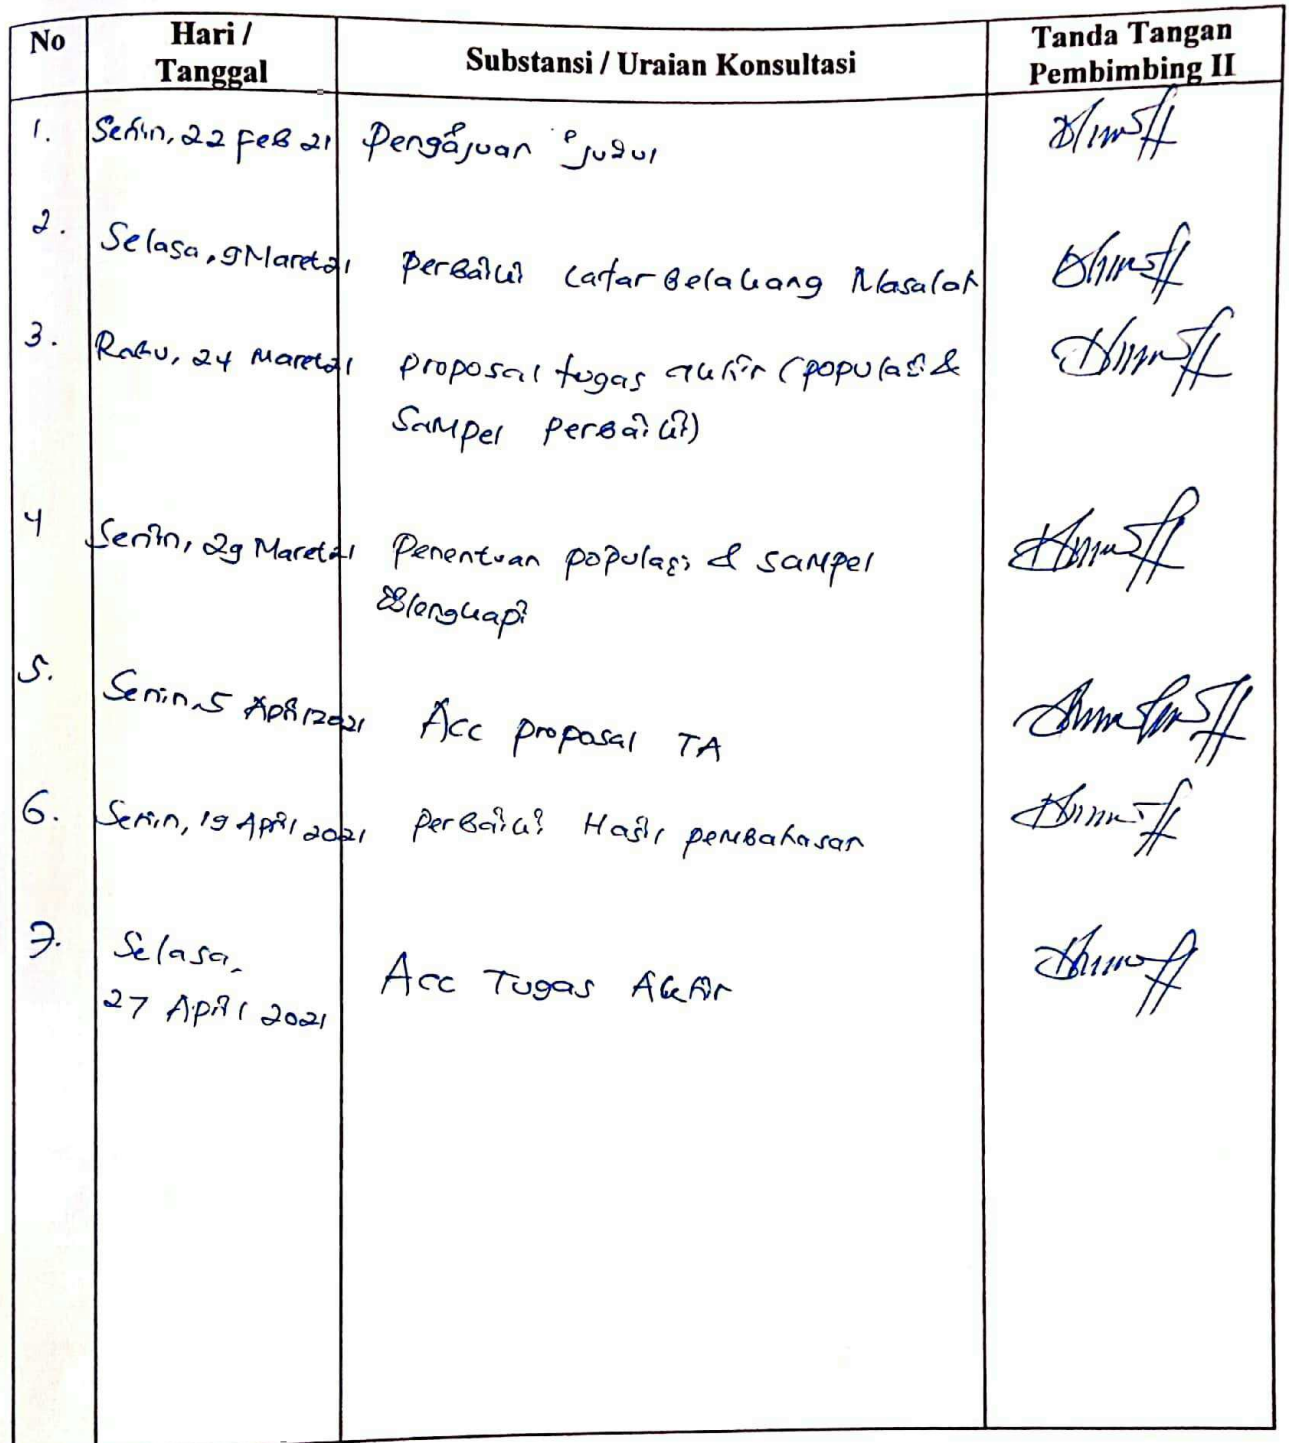 No Hari / Tanggal Substansi / Uraian Konsultasi Tanda Tangan Pembimbing II
1. Senin, 22 Feb 21 Pengajuan judul
2. Selasa, 9 Maret 21 Perbaiki Latar Belakang Masalah
3. Rabu, 24 Maret 21 proposal tugas akhir (populasi &
Sampel Perbaiki)
4 Senin, 29 Maret 21 Penentuan populasi & sampel
dilengkapi
5. Senin, 5 April 2021 Acc proposal TA
6. Senin, 19 April 2021 Perbaiki Hasil pembahasan
7. Selasa,
27 April 2021 Acc Tugas Akhir